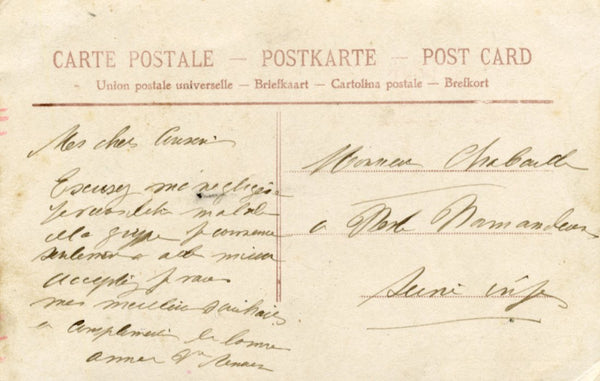 CARTE POSTALE — POSTKARTE — POST CARD
Union postale universelle — Briefkaart — Cartolina postale — Brefkort
Mes chers Cousins
Excusez ma négligence
je suis malade
de la grippe je commence
seulement a allé mieux
acceptez pr vous
mes meilleurs souhaits
a compliments de bonne
année
Monsieur Chabaud
a
Seine infre